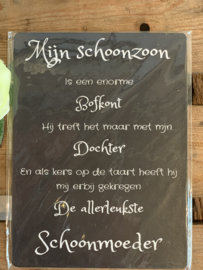 Mijn schoonzoon
is een enorme
Bofkont
Hij treft het maar met mijn
Dochter
En als kers op de taart heeft hij
mij erbij gekregen
De allerleukste
Schoonmoeder